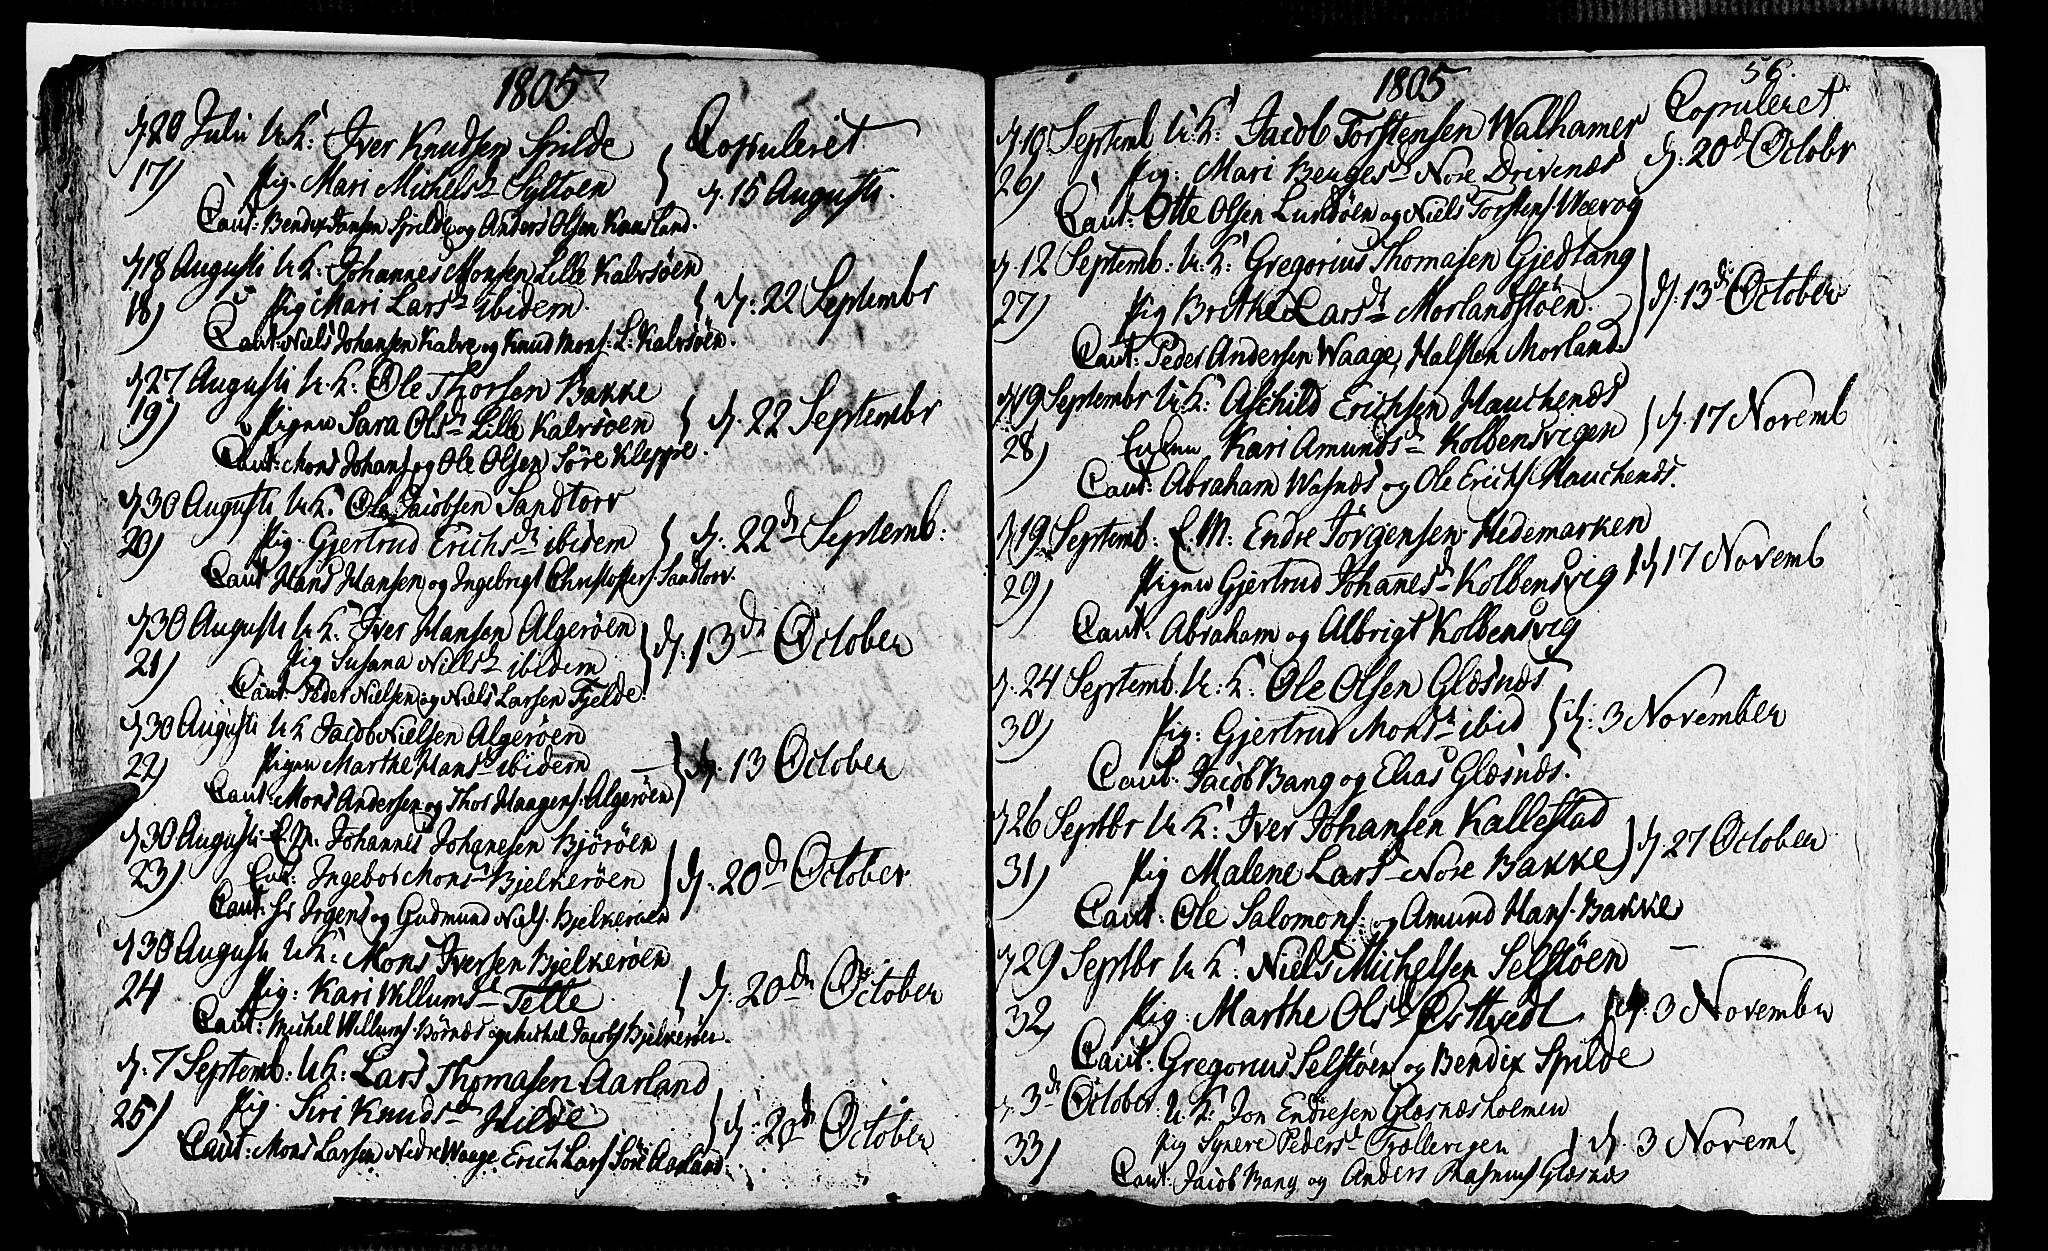 1805
d 20 Julii U. K: Iver Knudsen Spilde Copuleret
17) Pig. Mari Michelsd Syltøen } d. 15 Augusti.
Caut: Bendix Jansen Spilde og Anders Olsen Knusland.
d 18 Augusti U K: Johannes Monsen Lille Kalvsøen
18) Pig Mari Larsd ibidem. } d: 22 Septembr
Caut: Niels Johansen Kalve og Knud Mons: L: Kalvsöen.
d 27 Augusti U. K: Ole Thorsen Bakke
19) Pigen Sara Olsd Lille Kalvsöen } d. 22 Septembr
Caut: Mons Johans og Ole Olsen Söre Kleppe.
d 30 Augusti U K: Ole Jacobsen Sandtorv
20) Pig. Gjertrud Erichsdr ibidem } d. 22de Septemb:
Caut Hans Hansen og Ingebrigt Christoffers. Sandtorv.
d 30 Augusti U K: Iver Hansen Algeröen
21) Pig Susana Nielsd ibidem } d: 13de October
Caut. Peder Nielsen og Niels Larsen Fjelde.
d 30 Augusti U K Jacob Nielsen Algeröen
22) Pigen Marthe Hansd ibidem } d. 13 October
Caut: Mons Andersen og Thos Haagens: Algeröen
d 30 Augusti E. M. Johannes Johanesen Björöen
23) Enk: Ingebor Monsd Bjelkeröen } d. 20de October
Caut: Hr Irgens og Gudmund Niels. Bjelkeröen
d 30 Augusti U K: Mons Iversen Bjelkeröen
24 Pig: Kari Willumsd Telle } d. 20de October
Caut: Michel Willums Börnæs og Michel Jacobs Bjelkeröen.
d. 7 Septemb: U K: Lars Thomasen Aarland
25) Pig. Siri Knudsdr Hilde } d: 20de October
Caut: Mons Larsen Nedre Waage, Erich Lars Söre Aarland.
1805 56.
d. 10 Septemb U. K: Jacob Torstensen Walhamer Copuleret
26) Pig: Mari Bengesd Nore Drivenæs d. 20de Octobr
Caut: Otte Olsen Lundöen og Niels Torstens. Weevog
d. 12 Septemb: U. K: Gregorius Thomasen Gjedtang
27) Pig Brithe Larsdr Morlandstöen. } d. 13de October
Caut: Peder Andersen Waage, Halsten Morland.
d 19 Septembr U. K: Aschild Erichsen Hauchenæs
28) Enken Kari Amundsdr Kolbensvigen } d. 17 Novemb
Caut: Abraham Wasnæs og Ole Erichs Hauchenæs.
d 19 Septemb: E. M: Endre Jörgensen Hedemarken
29) Pigen Gjertrud Johanesdr Kolbensvig } d 17 Novemb
Caut: Abraham og Albrigt Kolbensvig
d. 24 Septemb. U. K: Ole Olsen Glæsnæs
30) Pig: Gjertrud Monsd ibid } d. 3 November
Caut. Jacob Bang og Elias Glæsnæs.
d 26 Septbr U K: Iver Johansen Kallestad
31) Pig Malene Larsd Nore Bakke } d 27 October
Caut: Ole Salomons. og Amund Hans. Bakke
d 29 Septbr U K: Niels Michelsen Selstöen
32) Pig: Marthe Olsd Östtvedt } d. 3 November
Caut: Gregorius Selstöen og Bendix Spilde
d. 3de October. U. K: Jon Endresen Glæsnæsholmen
33) Pig Synere Pedersd Trællevigen } d. 3 Novemb
Caut. Jacob Bang og Anders Rasmus Glæsnæs